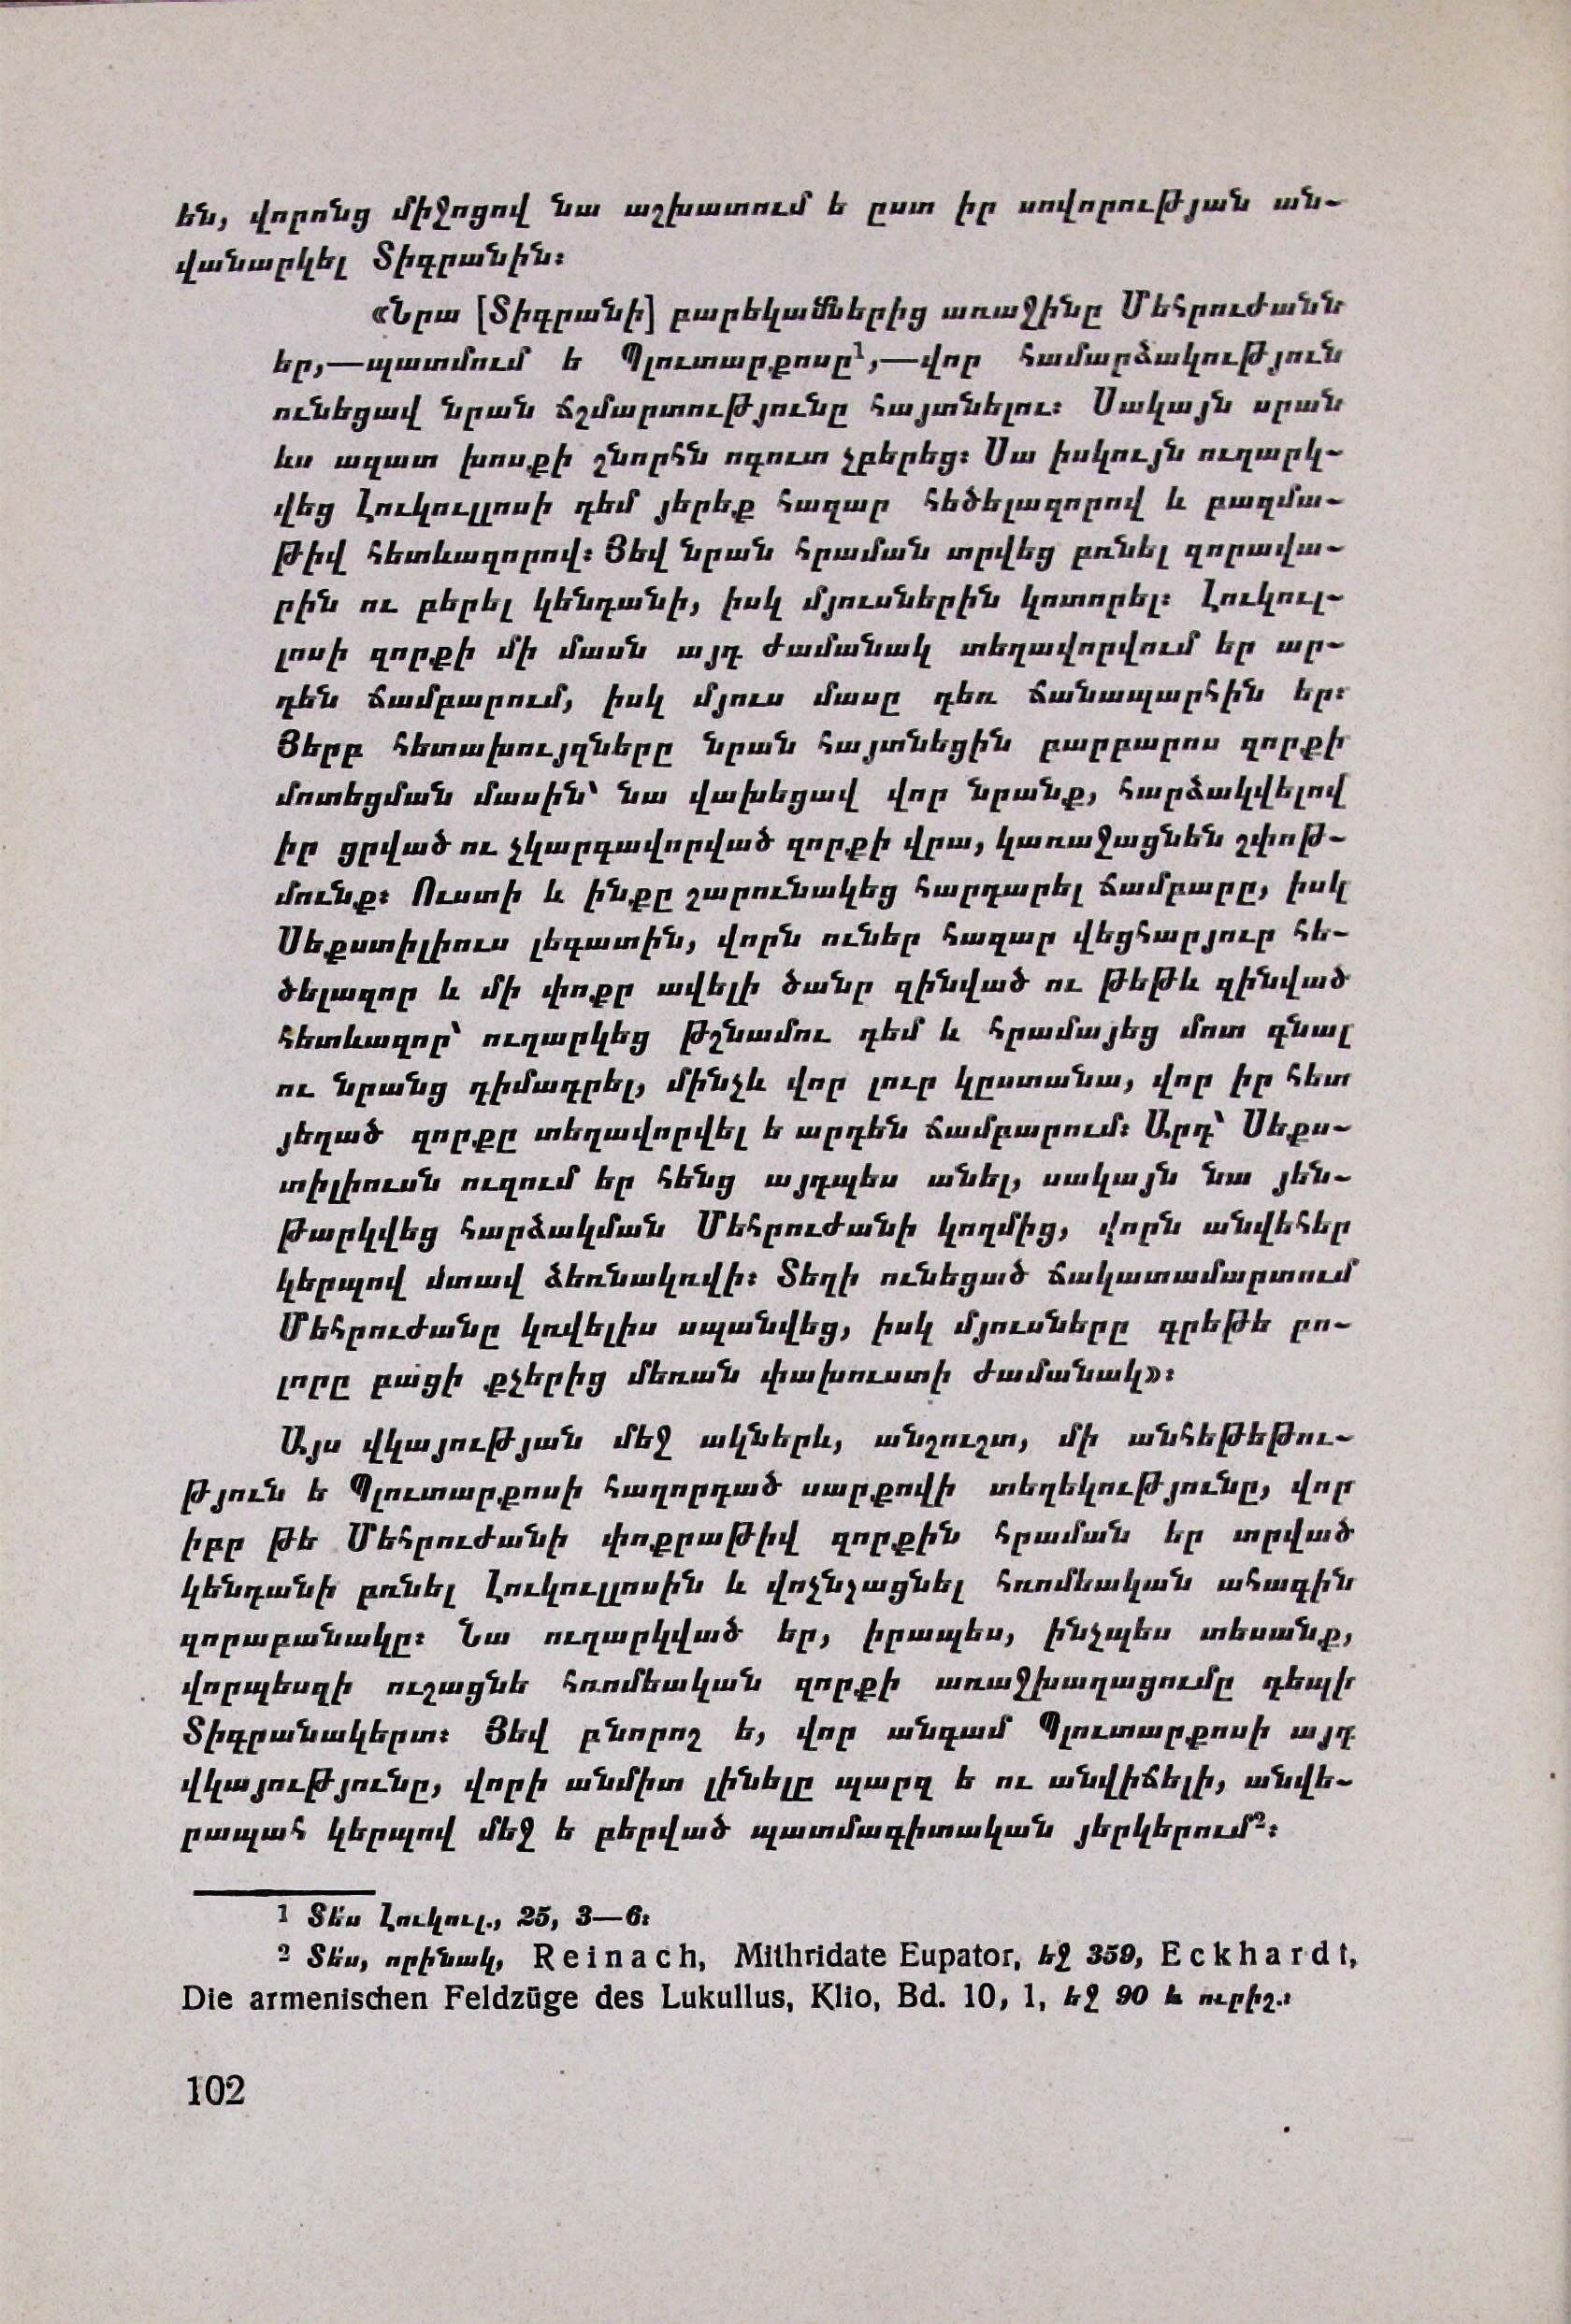 են, վորոնց միջոցով նա աշխատում ե ըստ իր սովորության ան-
վանարկել Տիգրանին։
«Նրա [Տիգրանի] բարեկամներից առաջինը Մեհրուժանն
եր,—պատմում ե Պլուտարքոսը¹,—վոր համարձակություն
ունեցավ նրան ճշմարտությունը հայտնելու։ Սակայն սրան
ևս ազատ խոսքի շնորհն ոգուտ չբերեց։ Սա իսկույն ուղարկ-
վեց Լուկուլլոսի դեմ յերեք հազար հեծելազորով և բազմա-
թիվ հետևազորով։ Յեվ նրան հրաման տրվեց բռնել զորավա-
րին ու բերել կենդանի, իսկ մյուսներին կոտորել։ Լուկուլ-
լոսի զորքի մի մասն այդ ժամանակ տեղավորվում եր ար-
դեն ճամբարում, իսկ մյուս մասը դեռ ճանապարհին եր։
Յերբ հետախույզները նրան հայտնեցին բարբարոս զորքի
մոտեցման մասին՝ նա վախեցավ վոր նրանք, հարձակվելով
իր ցրված ու չկարգավորված զորքի վրա, կառաջացնեն շփոթ-
մունք։ Ուստի և ինքը շարունակեց հարդարել ճամբարը, իսկ
Սեքստիլիուս լեգատին, վորն ուներ հազար վեցհարյուր հե-
ծելազոր և մի փոքր ավելի ծանր զինված ու թեթև զինված
հետևազոր՝ ուղարկեց թշնամու դեմ և հրամայեց մոտ գնալ
ու նրանց դիմադրել, մինչև վոր լուր կըստանա, վոր իր հետ
յեղած զորքը տեղավորվել ե արդեն ճամբարում։ Արդ՝ Սեքս-
տիլիուսն ուզում եր հենց այդպես անել, սակայն նա յեն-
թարկվեց հարձակման Մեհրուժանի կողմից, վորն անվեհեր
կերպով մտավ ձեռնակռվի։ Տեղի ունեցած ճակատամարտում
Մեհրուժանը կռվելիս սպանվեց, իսկ մյուսները գրեթե բո-
լորը բացի քչերից մեռան փախուստի ժամանակ»։
Այս վկայության մեջ ակներև, անշուշտ, մի անհեթեթու-
թյուն ե Պլուտարքոսի հաղորդած սարքովի տեղեկությունը, վոր
իբր թե Մեհրուժանի փոքրաթիվ զորքին հրաման եր տրված
կենդանի բռնել Լուկուլլոսին և վոչնչացնել հռոմեական ահագին
զորաբանակը։ Նա ուղարկված եր, իրապես, ինչպես տեսանք,
վորպեսզի ուշացնե հռոմեական զորքի առաջխաղացումը դեպի
Տիգրանակերտ։ Յեվ բնորոշ ե, վոր անգամ Պլուտարքոսի այդ
վկայությունը, վորի անմիտ լինելը պարզ ե ու անվիճելի, անվե-
րապահ կերպով մեջ ե բերված պատմագիտական յերկերում²։
1 Տե՛ս Լուկուլ., 25, 3—6։
2 Տե՛ս, որինակ, Reinach, Mithridate Eupator, եջ 359, Eckhardt,
Die armenischen Feldzüge des Lukullus, Klio, Bd. 10, 1, եջ 90 և ուրիշ.։
102